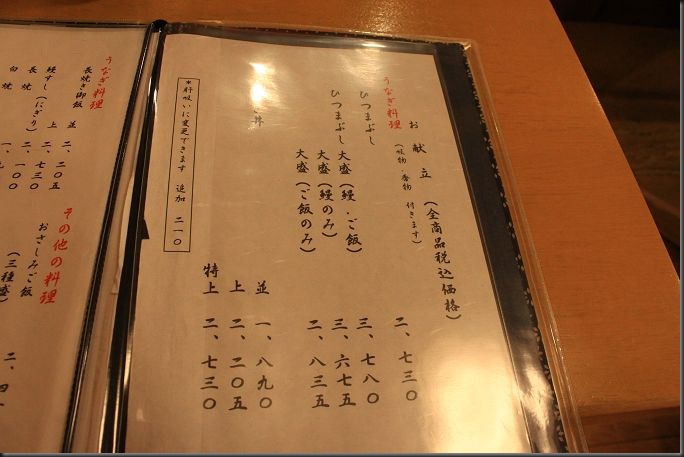 お献立（全商品税込価格）
うなぎ料理（吸物・香物 付きます）
ひつまぶし 二、七三〇
ひつまぶし 大盛（鰻・ご飯） 三、七八〇
大盛（鰻のみ） 三、六七五
大盛（ご飯のみ） 二、八三五
丼 並 一、八九〇
上 二、二〇五
特上 二、七三〇
*肝吸いに変更できます 追加 二一〇
うなぎ料理
長焼き御飯 並 二、二〇五
上 二、七三〇
鰻すし（にぎり） 二、一〇〇
長焼 一、
白焼
その他の料理
おさしみご飯
（三種盛） 二、四